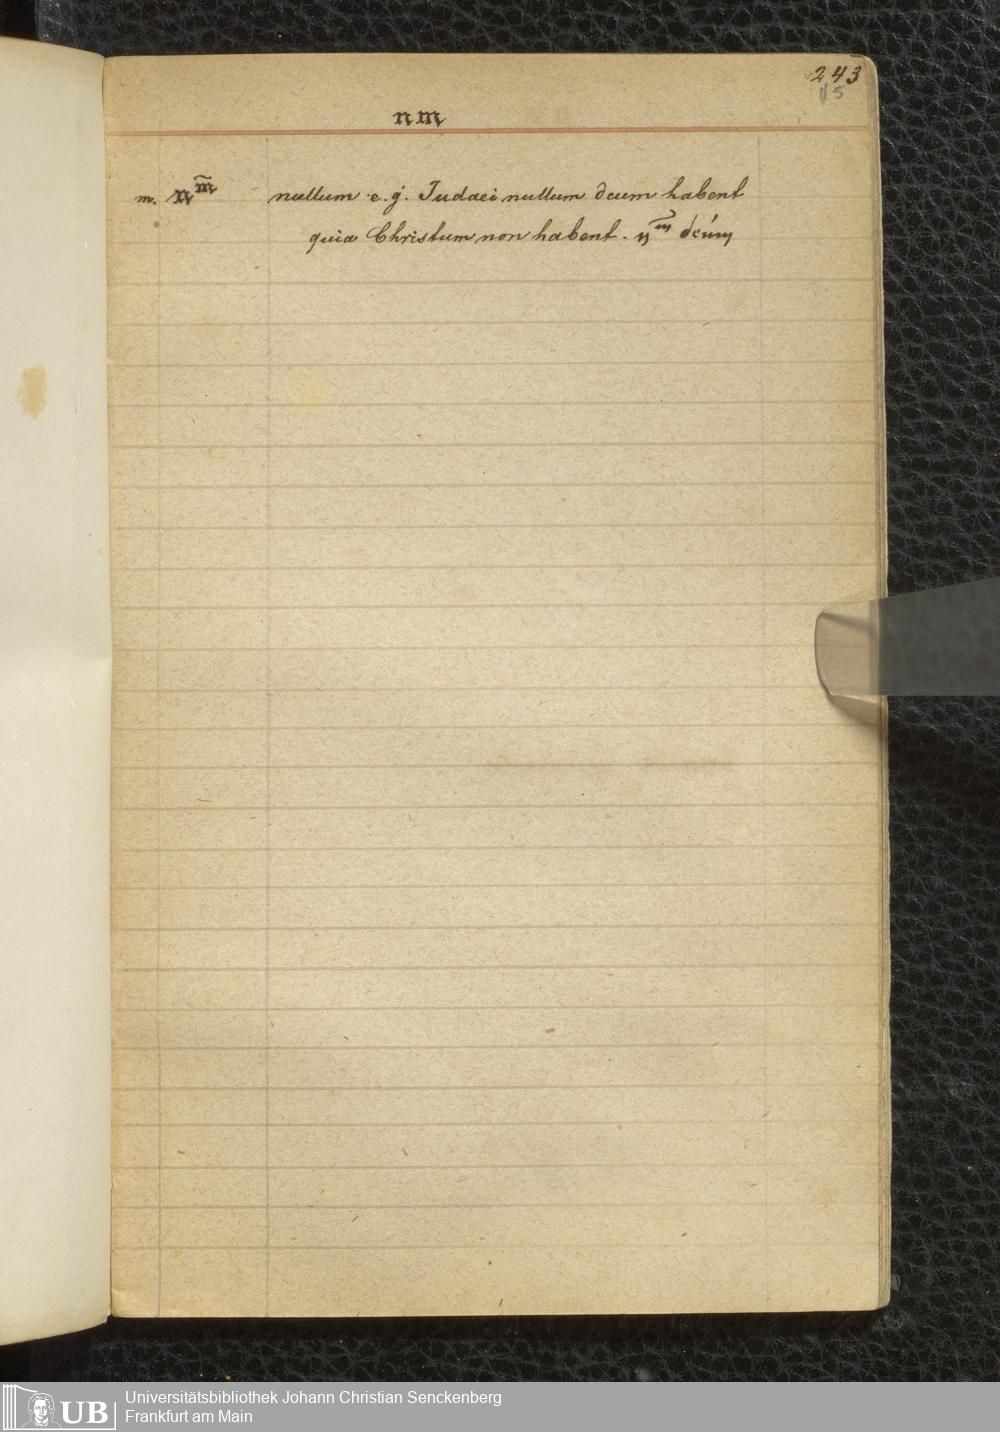 243
45
nm
m. n̅m̅ nullum e.g. Judaei nullum deum habent
quia Christum non habent. nm̅ deúm
UB Universitätsbibliothek Johann Christian Senckenberg
Frankfurt am Main